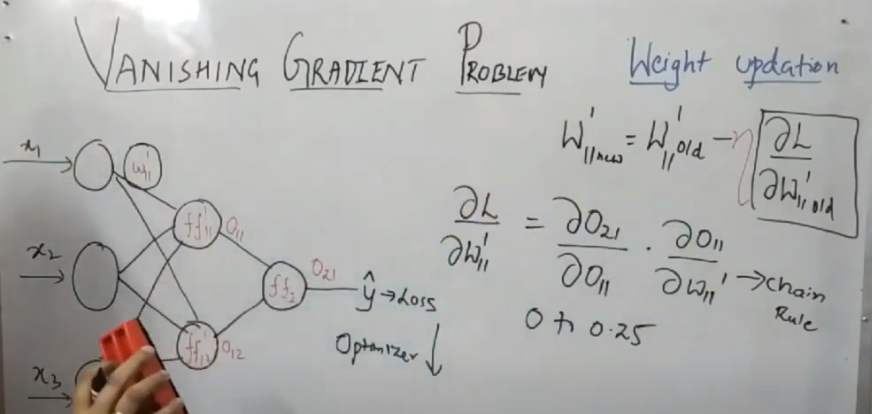 VANISHING GRADIENT PROBLEM
Weight updation
W'₁₁new = W'₁₁old − η ∂L/∂W'₁₁old
x₁
w'₁₁
ff'₁₁ O₁₁
x₂
ff₂ O₂₁
ŷ → Loss
Optimizer ↓
ff'₁₂ O₁₂
x₃
∂L/∂W'₁₁ = ∂O₂₁/∂O₁₁ · ∂O₁₁/∂W₁₁' → Chain Rule
0 to 0.25